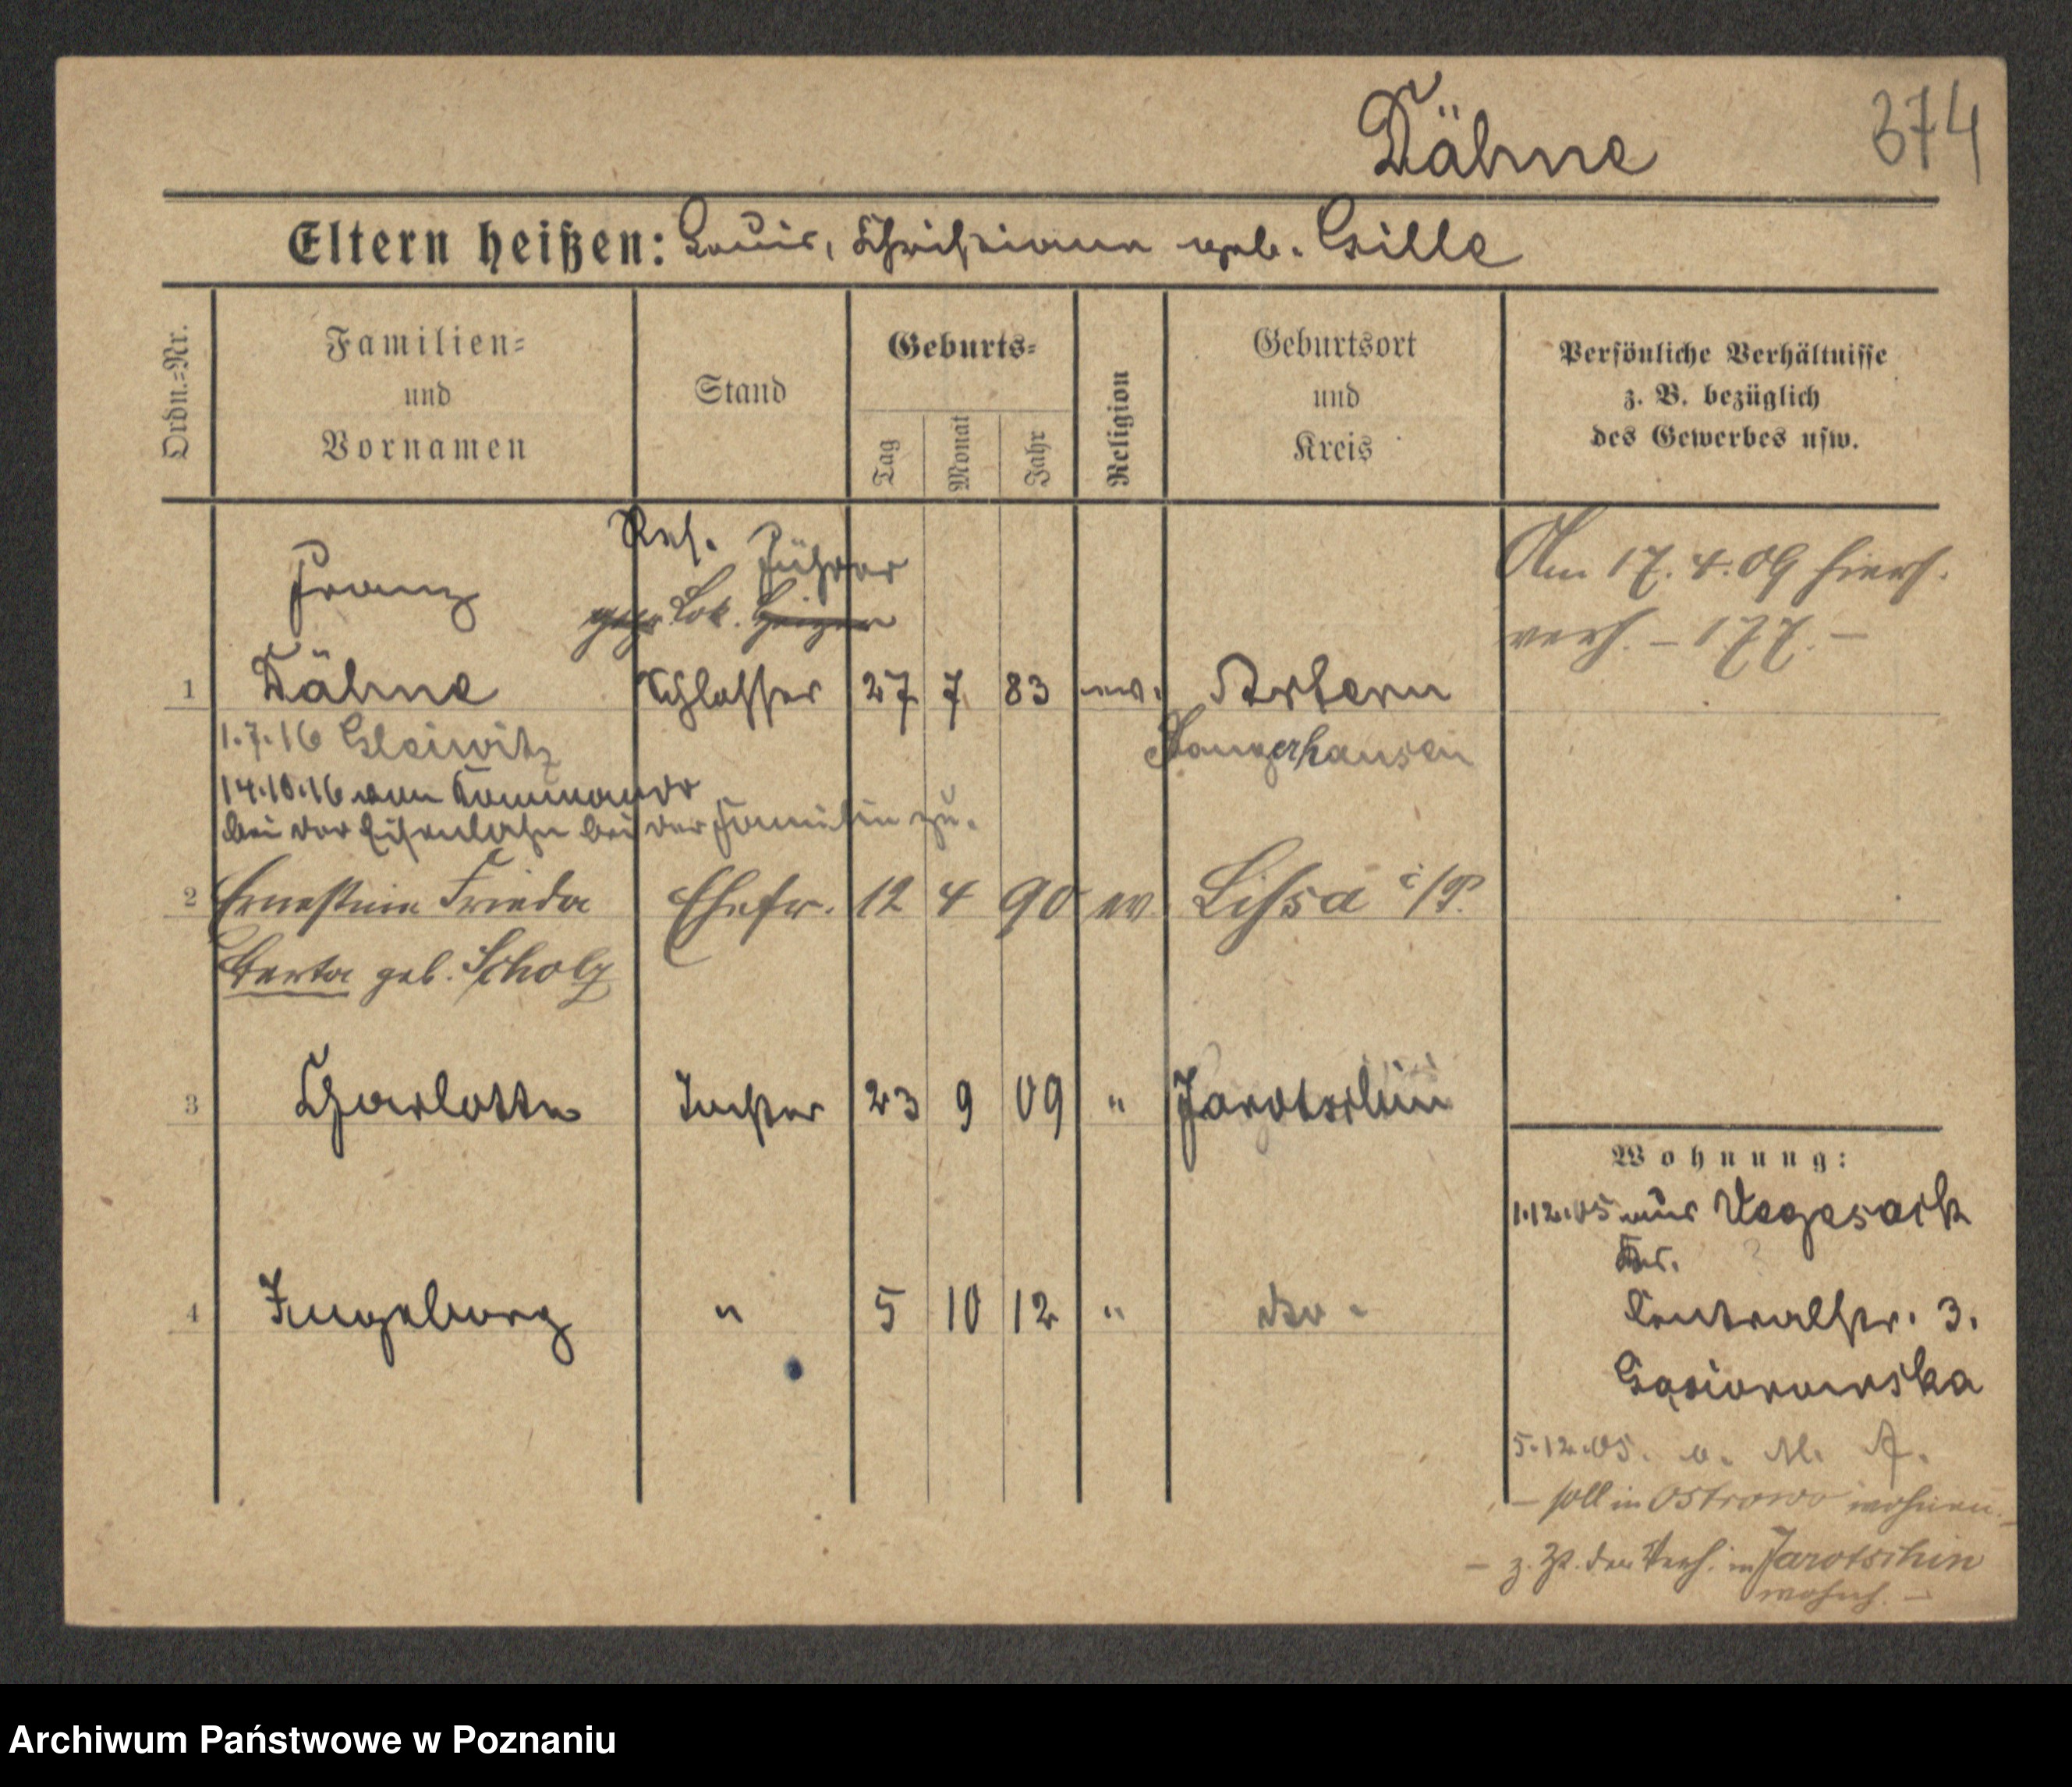 Dähne
374
Eltern heißen: Louis, Christiane geb. Gille
Ordn.=Nr.
Familien=
und
Vornamen
Stand
Geburts=
Tag
Monat
Jahr
Religion
Geburtsort
und
Kreis
Persönliche Verhältnisse
z. B. bezüglich
des Gewerbes usw.
Res. Führer
Franz
Lok. Heizer
1 Dähne Schlosser 27 7 83 ev. Artern
Sangerhausen
Am 17. 4. 09 hiers.
verh. – 177. –
1.7.16 Gleiwitz
14.10.16 vom Kommando
bei der Eisenbahn bei der Familie zu.
2 Ernestine Frieda Ehefr. 12 4 90 ev Lissa i/P.
Berta geb. Scholz
3 Charlotte Tochter 23 9 09 " Jarotschin
4 Ingeborg " 5 10 12 " dto -
Wohnung:
1.12.05 aus Vegesack
Centralstr. 3.
Gąsiorowska
5.12.05. o. M. A.
– soll in Ostrowo wohnen. –
– z. Zt. der Verh. in Jarotschin
wohnh. –
Archiwum Państwowe w Poznaniu